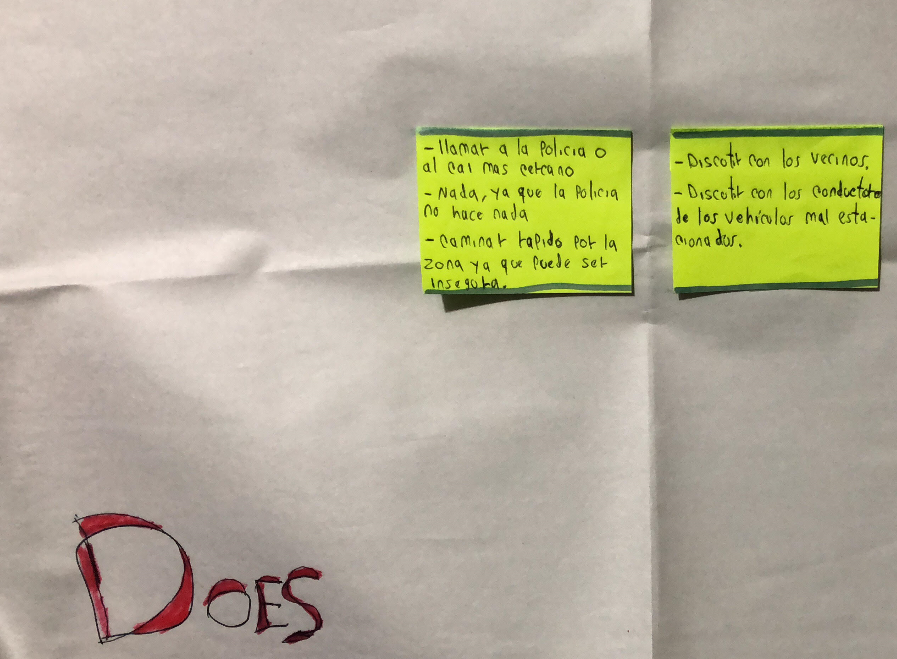 - llamar a la Policia o
al cai mas cercano
- Nada, ya que la Policia
no hace nada
- caminar rapido por la
zona ya que puede ser
insegura.
- Discutir con los vecinos.
- Discutir con los conductore
de los vehículos mal esta-
cionados.
DOES